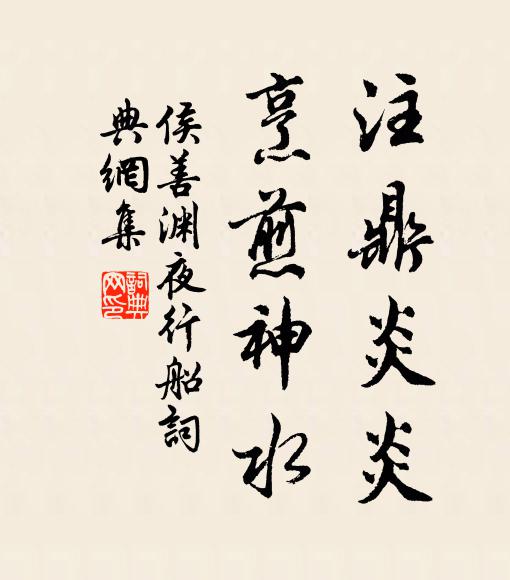 注鼎炎炎
烹煎神水
侯善渊夜行船詞
典網集
詞典网印